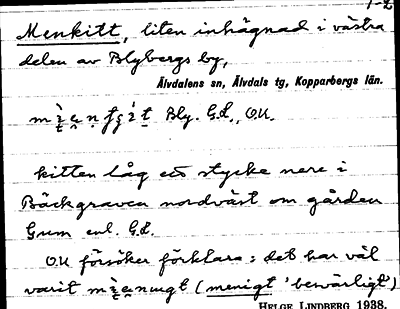 1-2
Menkitt, liten inhägnad i västra
delen av Blybergs by,
Älvdalens sn, Älvdals tg, Kopparbergs län.
Bly. G.L., O.U.
kitten låg ett stycke nere i
Bäckgraven nordväst om gården
Gum enl. G.L.
O.U försöker förklara: det har väl
varit (menigt 'besvärligt')
HELGE LINDBERG 1938.